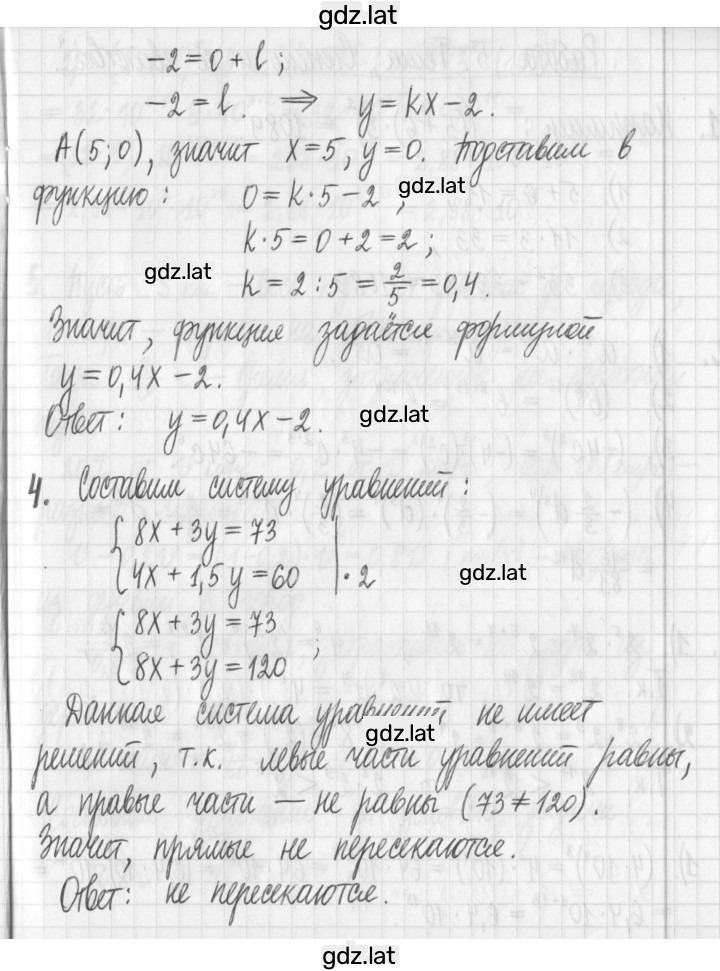 gdz.lat
-2 = 0 + b;
-2 = b. ⟹ y = kx - 2.
A(5; 0), значит x = 5, y = 0. Подставим в
функцию: 0 = k · 5 - 2 ;
gdz.lat
k · 5 = 0 + 2 = 2;
gdz.lat
k = 2 : 5 = 2/5 = 0,4.
Значит, функция задаётся формулой
y = 0,4x - 2.
Ответ: y = 0,4x - 2.
gdz.lat
4. Составим систему уравнений:
{ 8x + 3y = 73
{ 4x + 1,5y = 60 | · 2
gdz.lat
{ 8x + 3y = 73
{ 8x + 3y = 120 ;
Данная система уравнений не имеет
gdz.lat
решений, т.к. левые части уравнений равны,
а правые части — не равны (73 ≠ 120).
Значит, прямые не пересекаются.
Ответ: не пересекаются.
gdz.lat